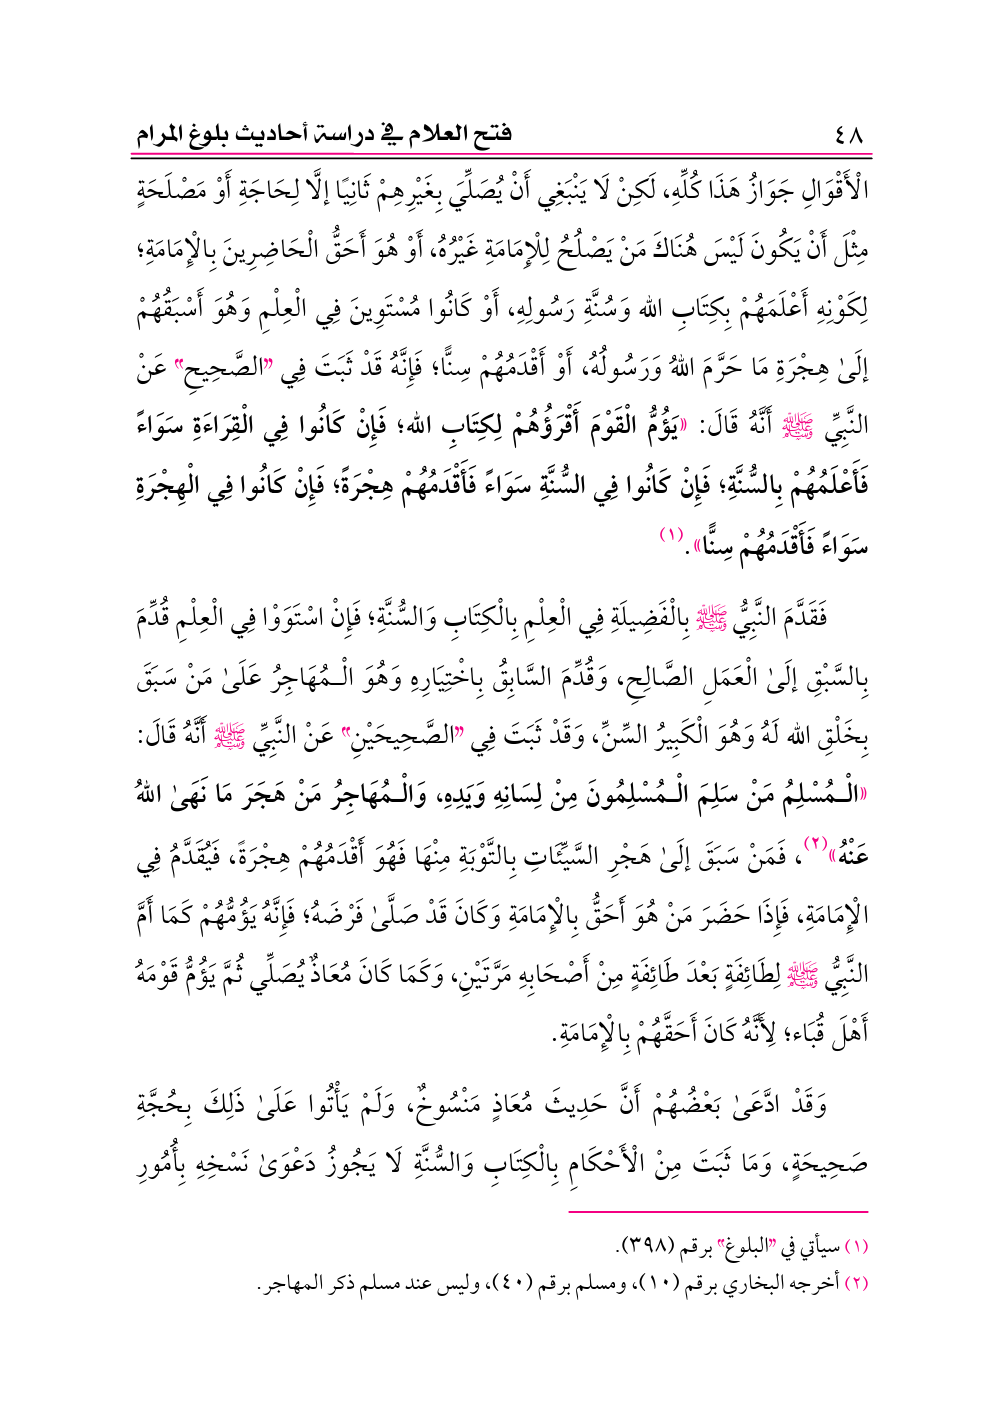 ٤٨ فتح العلام في دراسة أحاديث بلوغ المرام
الْأَقْوَالِ جَوَازُ هَذَا كُلِّهِ، لَكِنْ لَا يَنْبَغِي أَنْ يُصَلِّيَ بِغَيْرِهِمْ ثَانِيًا إلَّا لِحَاجَةِ أَوْ مَصْلَحَةٍ
مِثْلَ أَنْ يَكُونَ لَيْسَ هُنَاكَ مَنْ يَصْلُحُ لِلْإِمَامَةِ غَيْرُهُ، أَوْ هُوَ أَحَقُّ الْحَاضِرِينَ بِالْإِمَامَةِ؛
لِكَوْنِهِ أَعْلَمَهُمْ بِكِتَابِ الله وَسُنَّةِ رَسُولِهِ، أَوْ كَانُوا مُسْتَوِينَ فِي الْعِلْمِ وَهُوَ أَسْبَقُهُمْ
إلَىٰ هِجْرَةِ مَا حَرَّمَ اللهُ وَرَسُولُهُ، أَوْ أَقْدَمُهُمْ سِنًّا؛ فَإِنَّهُ قَدْ ثَبَتَ فِي "الصَّحِيحِ" عَنْ
النَّبِيِّ ﷺ أَنَّهُ قَالَ: «يَؤُمُّ الْقَوْمَ أَقْرَؤُهُمْ لِكِتَابِ الله؛ فَإِنْ كَانُوا فِي الْقِرَاءَةِ سَوَاءً
فَأَعْلَمُهُمْ بِالسُّنَّةِ؛ فَإِنْ كَانُوا فِي السُّنَّةِ سَوَاءً فَأَقْدَمُهُمْ هِجْرَةً؛ فَإِنْ كَانُوا فِي الْهِجْرَةِ
سَوَاءً فَأَقْدَمُهُمْ سِنًّا».(١)
فَقَدَّمَ النَّبِيُّ ﷺ بِالْفَضِيلَةِ فِي الْعِلْمِ بِالْكِتَابِ وَالسُّنَّةِ؛ فَإِنْ اسْتَوَوْا فِي الْعِلْمِ قُدِّمَ
بِالسَّبْقِ إلَىٰ الْعَمَلِ الصَّالِحِ، وَقُدِّمَ السَّابِقُ بِاخْتِيَارِهِ وَهُوَ الْـمُهَاجِرُ عَلَىٰ مَنْ سَبَقَ
بِخَلْقِ الله لَهُ وَهُوَ الْكَبِيرُ السِّنِّ، وَقَدْ ثَبَتَ فِي "الصَّحِيحَيْنِ" عَنْ النَّبِيِّ ﷺ أَنَّهُ قَالَ:
«الْـمُسْلِمُ مَنْ سَلِمَ الْـمُسْلِمُونَ مِنْ لِسَانِهِ وَيَدِهِ، وَالْـمُهَاجِرُ مَنْ هَجَرَ مَا نَهَىٰ اللهُ
عَنْهُ»(٢)، فَمَنْ سَبَقَ إلَىٰ هَجْرِ السَّيِّئَاتِ بِالتَّوْبَةِ مِنْهَا فَهُوَ أَقْدَمُهُمْ هِجْرَةً، فَيُقَدَّمُ فِي
الْإِمَامَةِ، فَإِذَا حَضَرَ مَنْ هُوَ أَحَقُّ بِالْإِمَامَةِ وَكَانَ قَدْ صَلَّىٰ فَرْضَهُ؛ فَإِنَّهُ يَؤُمُّهُمْ كَمَا أَمَّ
النَّبِيُّ ﷺ لِطَائِفَةٍ بَعْدَ طَائِفَةٍ مِنْ أَصْحَابِهِ مَرَّتَيْنِ، وَكَمَا كَانَ مُعَاذٌ يُصَلِّي ثُمَّ يَؤُمُّ قَوْمَهُ
أَهْلَ قُبَاء؛ لِأَنَّهُ كَانَ أَحَقَّهُمْ بِالْإِمَامَةِ.
وَقَدْ ادَّعَىٰ بَعْضُهُمْ أَنَّ حَدِيثَ مُعَاذٍ مَنْسُوخٌ، وَلَمْ يَأْتُوا عَلَىٰ ذَلِكَ بِحُجَّةِ
صَحِيحَةٍ، وَمَا ثَبَتَ مِنْ الْأَحْكَامِ بِالْكِتَابِ وَالسُّنَّةِ لَا يَجُوزُ دَعْوَىٰ نَسْخِهِ بِأُمُورِ
(١) سيأتي في "البلوغ" برقم (٣٩٨).
(٢) أخرجه البخاري برقم (١٠)، ومسلم برقم (٤٠)، وليس عند مسلم ذكر المهاجر.